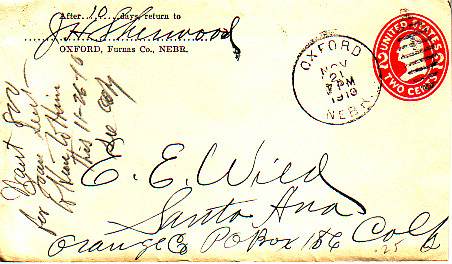 After 10 days, return to
J H Sherwood
OXFORD, Furnas Co., NEBR.
OXFORD
NOV
21
PM
1910
NEBR.
UNITED STATES
2 2
TWO CENTS
Want
for
to Him
11-26-10
E. E. Wild
Santa Ana
Orange Co PO Box 186 Cal
.25